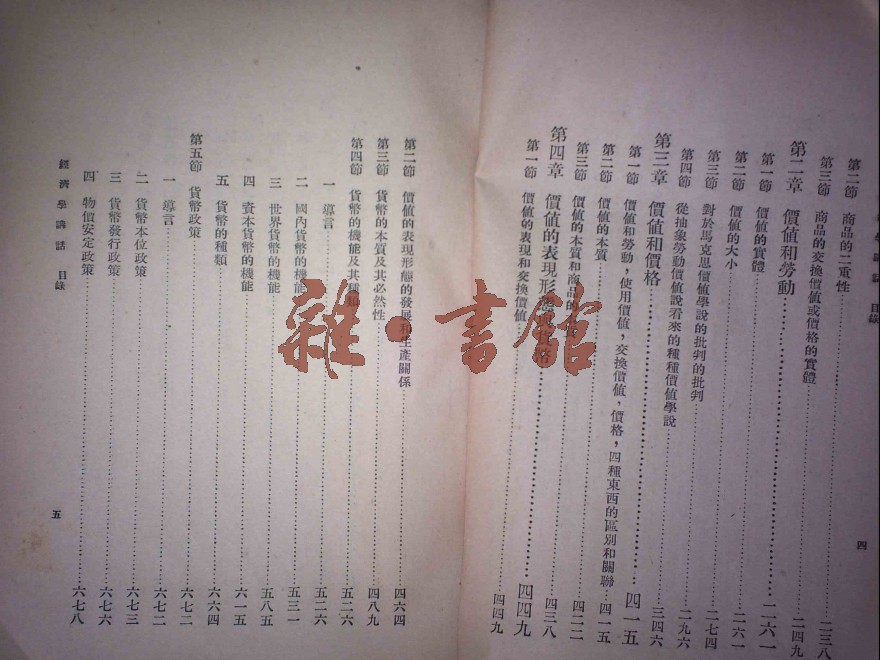 學講話 目錄
四
第二節 商品的二重性……二三八
第三節 商品的交換價值或價格的實體……二四九
第二章 價值和勞動……二六一
第一節 價值的實體……二六一
第二節 價值的大小……二七四
第三節 對於馬克思價值學說的批判的批判……二九六
第四節 從抽象勞動價值說看來的種種價值學說……三四六
第三章 價值和價格……四一五
第一節 價值和勞動,使用價值,交換價值,價格,四種東西的區別和關聯……四一五
第二節 價值的本質……四二二
第三節 價值的本質和商品的……四三八
第四章 價值的表現形態……四四九
第一節 價值的表現和交換價值……四四九
第二節 價值的表現形態的發展和生產關係……四六四
第三節 貨幣的本質及其必然性……四八九
第四節 貨幣的機能及其種類……五二六
一 導言……五二六
二 國內貨幣的機能……五三一
三 世界貨幣的機能……五八五
四 資本貨幣的機能……六一五
五 貨幣的種類……六六四
第五節 貨幣政策……六七二
一 導言……六七二
二 貨幣本位政策……六七三
三 貨幣發行政策……六七六
四 物價安定政策……六七八
經濟學講話 目錄
五
雜·書館